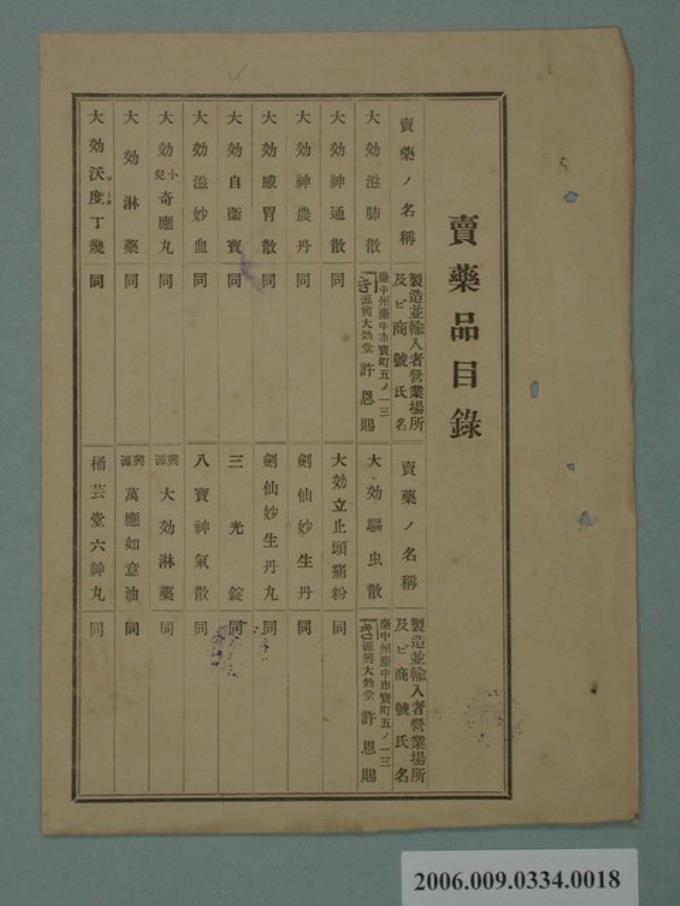 賣藥品目錄
賣藥ノ名稱
製造並輸入者營業場所及ビ商號氏名
大効滋肺散
臺中州臺中市寶町五ノ一三
源興大効堂 許恩賜
大効神通散 同
大効神農丹 同
大効感冒散 同
大効自衛寶 同
大効滋妙血 同
大効小兒奇應丸 同
大効淋藥 同
大効沃度丁幾 同
賣藥ノ名稱
製造並輸入者營業場所及ビ商號氏名
大効驅虫散
臺中州臺中市寶町五ノ一三
源興大効堂 許恩賜
大効立止頭痛粉 同
劍仙妙生丹 同
劍仙妙生丹丸 同
三光錠 同
八寶神氣散 同
源興大効淋藥 同
源興萬應如意油 同
桶芸堂六神丸 同
2006.009.0334.0018